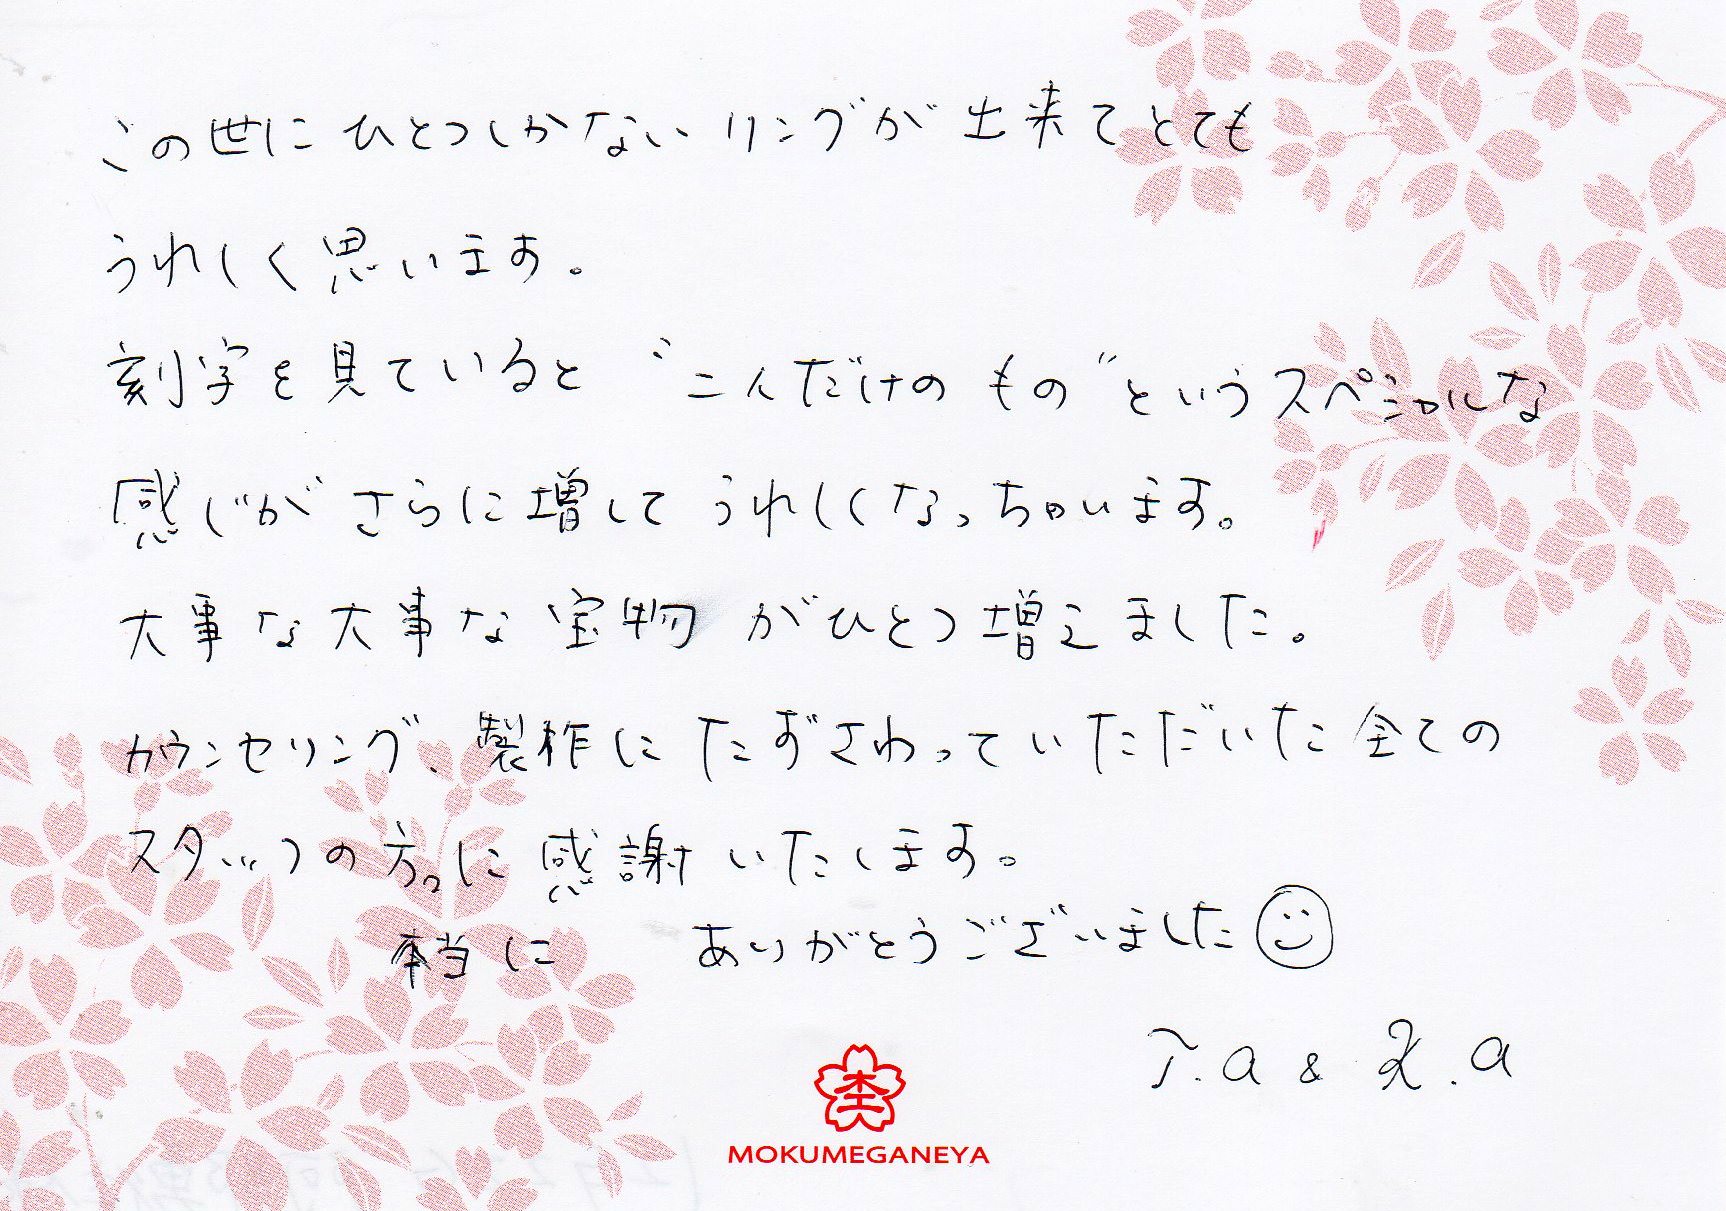 この世にひとつしかないリングが出来てとても
うれしく思います。
刻字を見ていると “二人だけのもの” というスペシャルな
感じがさらに増してうれしくなっちゃいます。
大事な大事な宝物がひとつ増えました。
カウンセリング、製作にたずさわっていただいた全ての
スタッフの方々に感謝いたします。
本当に ありがとうございました
T.a & K.a
MOKUMEGANEYA